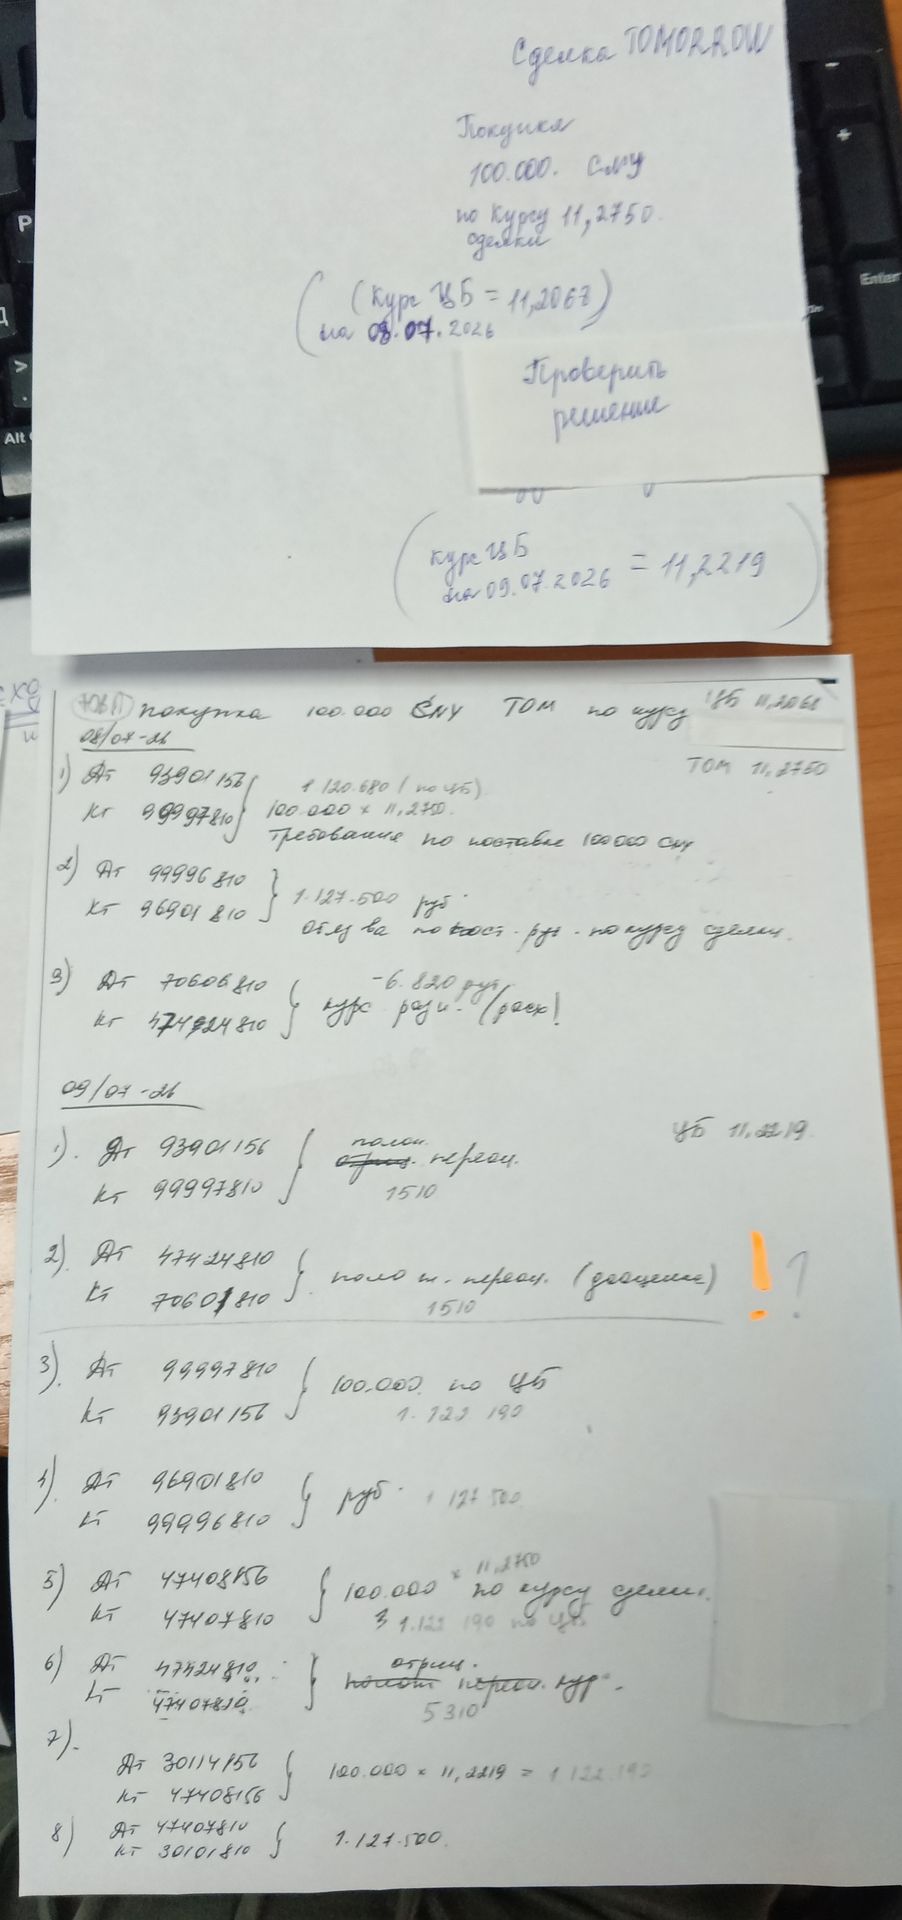 Сделка TOMORROW
Покупка
100.000. CNY
по курсу 11,2750.
сделки
(курс ЦБ = 11,2067)
на 08.07.2026
Проверить
решение
курс ЦБ
на 09.07.2026 = 11,2219
покупка 100.000 CNY TOM по курсу ЦБ 11,2068
08/07-26
TOM 11,2750
1) Дт 93901156
1 120.680 (по ЦБ)
Кт 99997810
100.000 × 11,2750.
Требования по поставке 100000 CNY
2) Дт 99996810
Кт 96901810
1.127.500 руб
обяз-ва по пост. руб. по курсу сделки.
3) Дт 70606810
-6.820 руб.
Кт 47424810
курс. разн. (расх)
09/07-26
ЦБ 11,2219.
1). Дт 93901156
полож.
отриц. переоц.
Кт 99997810
1510
2). Дт 47424810
полож. переоц. (дооценка) ! ?
Кт 70601810
1510
3). Дт 99997810
100.000. по ЦБ
Кт 93901156
1.122 190
4). Дт 96901810
руб. 1 127 500
Кт 99996810
5) Дт 47408156
100.000 × 11,2750 по курсу сделки.
Кт 47407810
1.122 190 по ЦБ.
6) Дт 47424810
отриц.
Кт 47407810
5310
7).
Дт 30114156
100.000 × 11,2219 = 1.122.190
Кт 47408156
8) Дт 47407810
Кт 30101810
1.127.500.
Enter
Alt